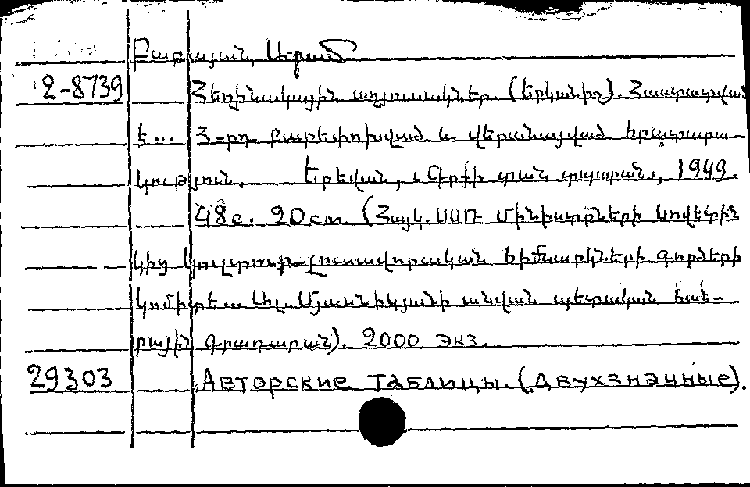 Բաբայան, Արամ
2-8739 Հեղինակային աղյուսակներ. (Երկնիշ). Հրատարակված
է... 3-րդ բարեփոխված և վերանայված հրատարա-
կություն. Երեվան, տպարան, 1949.
48 с. 20 см. (Հայկ. ՍՍՌ Մինիստրների Սովետին
կից կուլտուր-լուսավորական հիմնարկների գործերի
կոմիտե. Ալ. Մյասնիկյանի անվան պետական հան-
րային գրադարան). 2000 экз.
29303 Авторские таблицы. (Двухзначные).